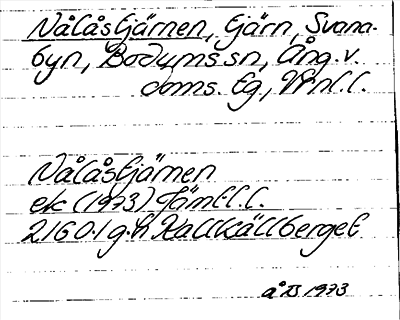 Nålåstjärnen, tjärn, Svana-
byn, Bodums sn, Ång. v.
doms. tg, Vrnl. l.
Nålåstjärnen
ek (1973) Jämtl. l.
2160.1 g.h Kallkällberget
1973